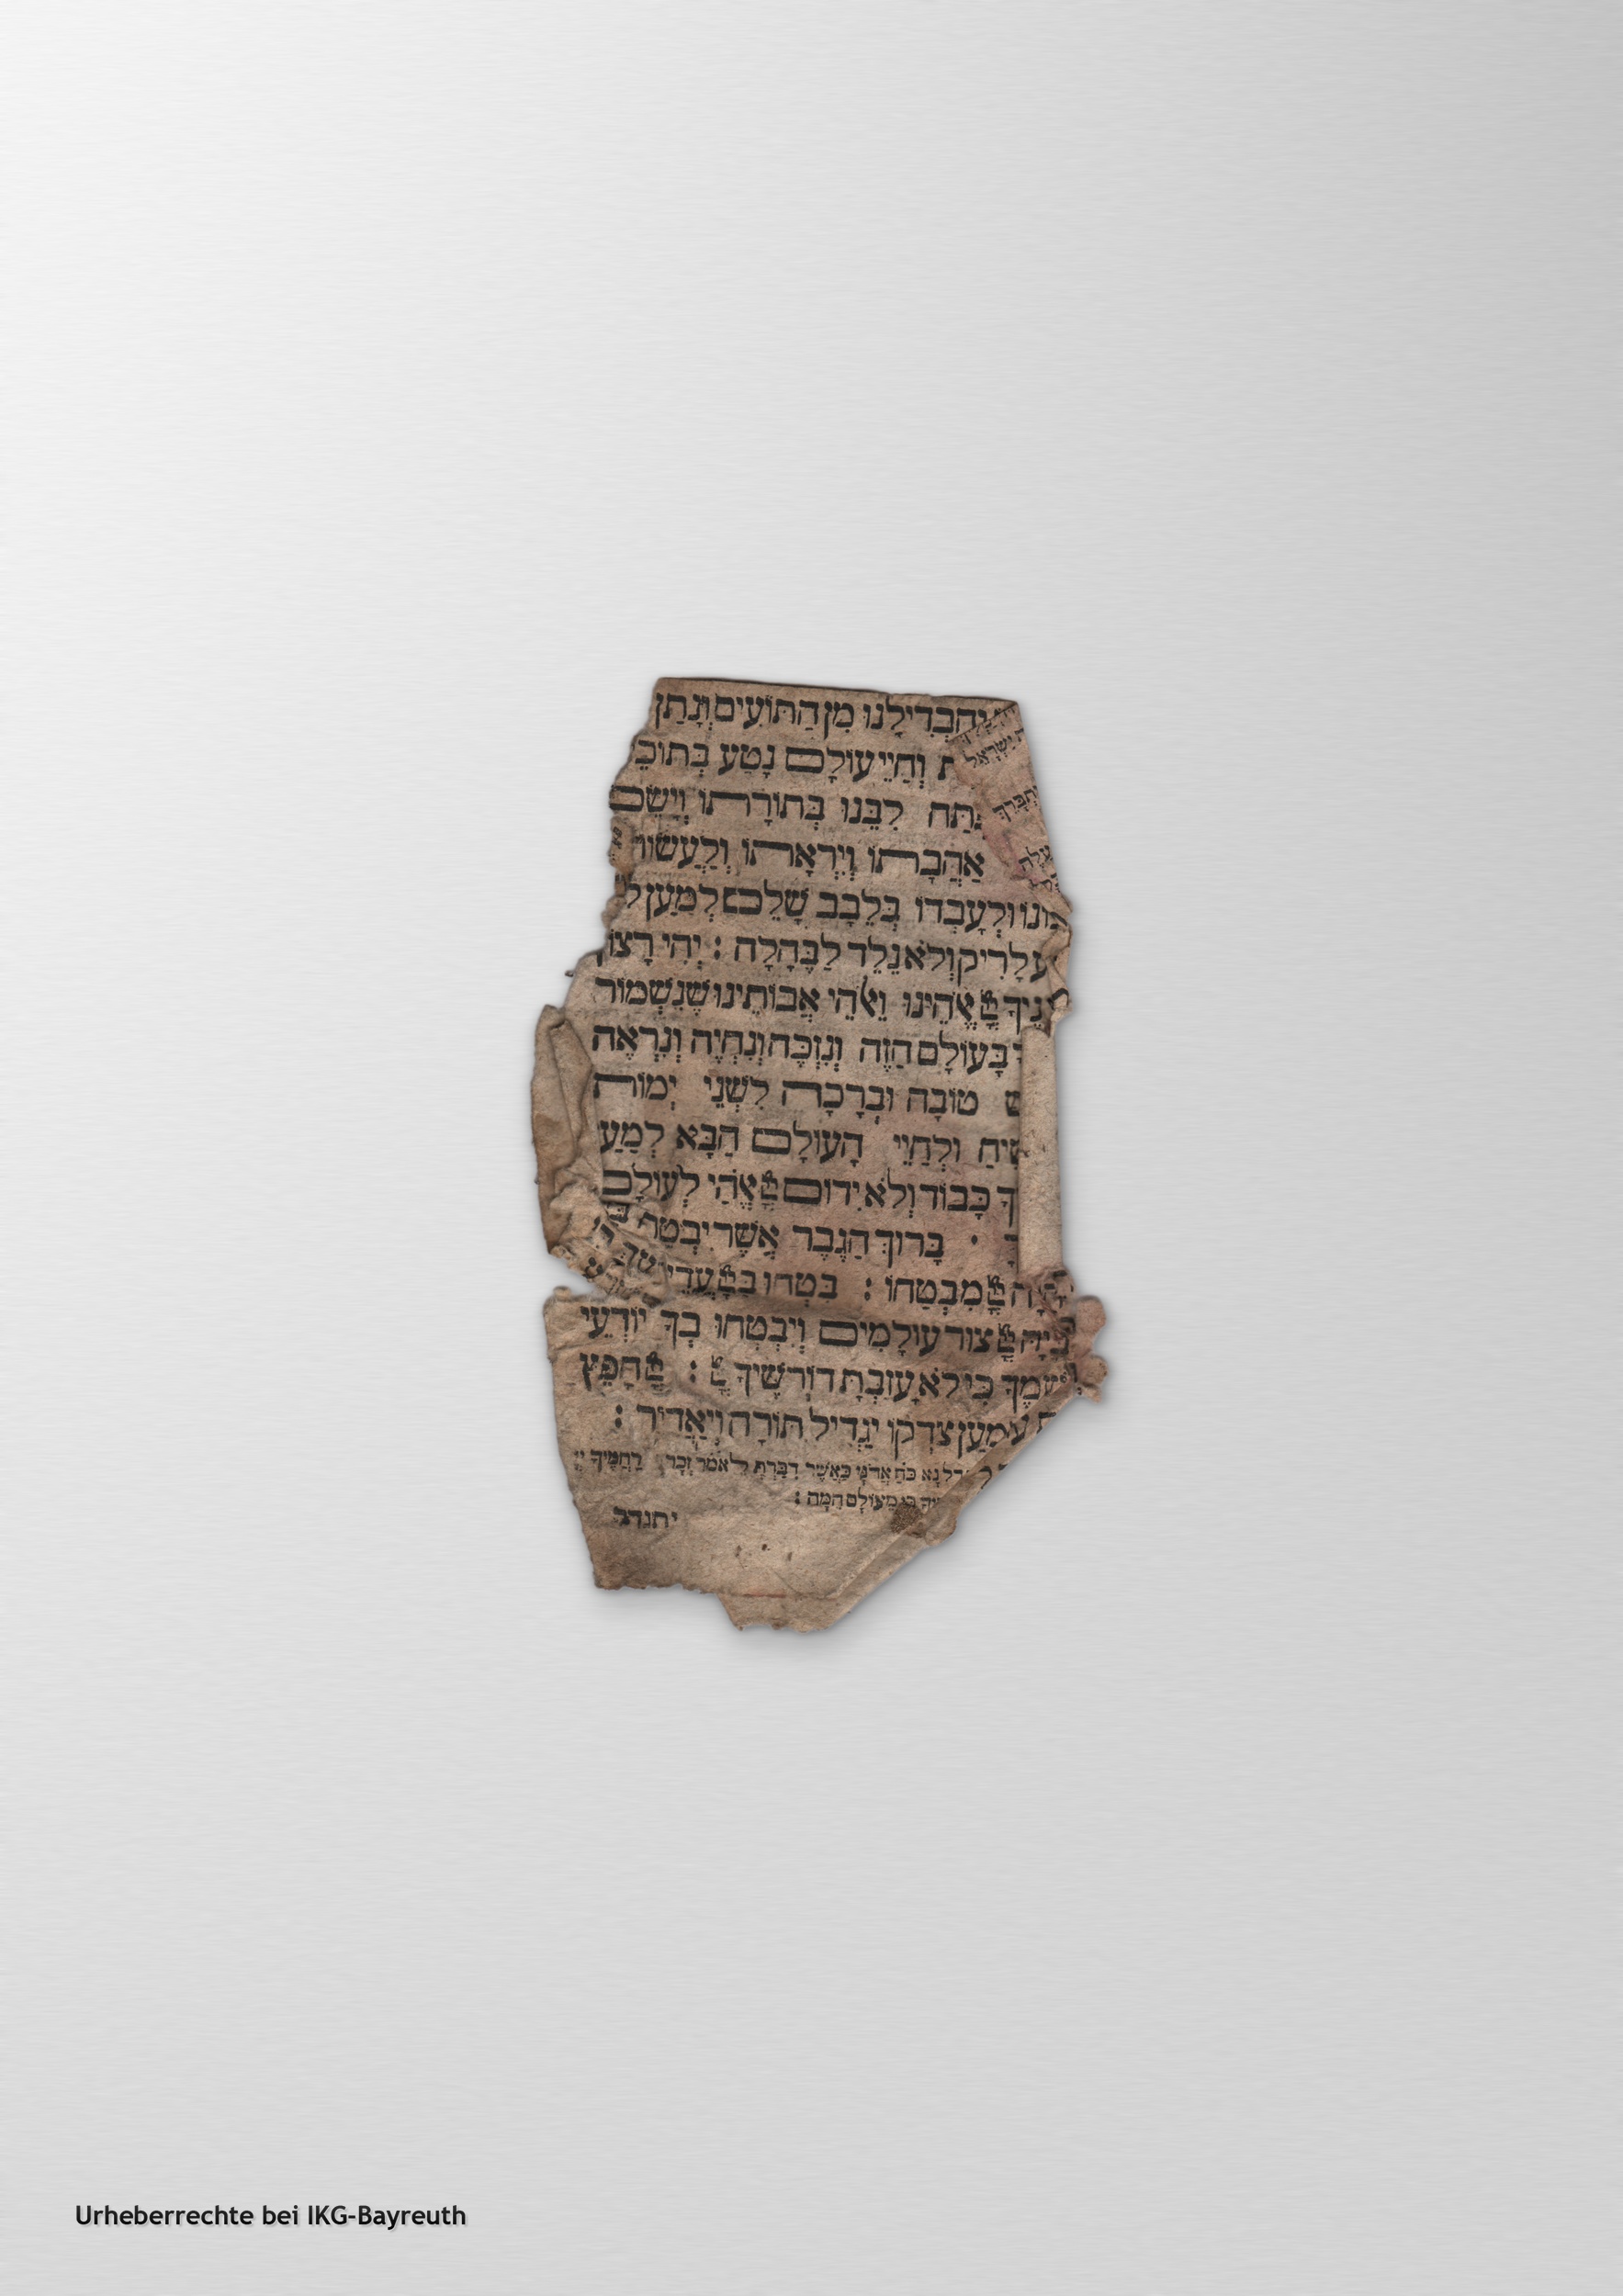 וְהִבְדִילָנוּ מִן הַתּוֹעִים וְנָתַן
ת וְחַיֵּי עוֹלָם נָטַע בְּתוֹכֵ
יִשְׂרָאֵל
תַּח לִבֵּנוּ בְּתוֹרָתוֹ וְיָשֵׂם
אַהֲבָתוֹ וְיִרְאָתוֹ וְלַעֲשׂוֹ
וֹנוֹ וּלְעָבְדוֹ בְּלֵבָב שָׁלֵם לְמַעַן ל
ע לָרִיק וְלֹא נֵלֵד לַבֶּהָלָה : יְהִי רָצוֹן
וֵאלֹהֵי אֲבוֹתֵינוּ שֶׁנִּשְׁמוֹר
בָּעוֹלָם הַזֶּה וְנִזְכֶּה וְנִחְיֶה וְנִרְאֶה
טוֹבָה וּבְרָכָה לִשְׁנֵי יְמוֹת
שִׁיחַ וּלְחַיֵּי הָעוֹלָם הַבָּא לְמַעַ
ךָ כָּבוֹד וְלֹא יִדּוֹם לְעוֹלָם
בָּרוּךְ הַגֶּבֶר אֲשֶׁר יִבְטַח
מִבְטַחוֹ : בִּטְחוּ עֲדֵי
צוּר עוֹלָמִים וְיִבְטְחוּ בְךָ יוֹדְעֵי
שְׁמֶךָ כִּי לֹא עָזַבְתָּ דוֹרְשֶׁיךָ : חָפֵץ
לְמַעַן צִדְקוֹ יַגְדִּיל תּוֹרָה וְיַאְדִּיר :
יִגְדַּל נָא כֹּחַ אֲדֹנָי כַּאֲשֶׁר דִּבַּרְתָּ לֵאמֹר זְכֹר רַחֲמֶיךָ יְיָ
כִּי מֵעוֹלָם הֵמָּה :
יתגדל
Urheberrechte bei IKG-Bayreuth